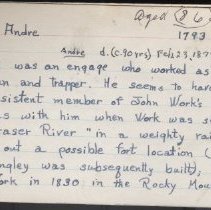 Aged (86
Andre 1793
Andre d. (c.90 yrs) Feb. 23, 187
was an engage who worked as
n and trapper. He seems to have
sistent member of John Work's
s with him when Work was s
raser River "in a weighty rai
out a possible fort location (
ngley was subsequently built);
ork in 1830 in the Rocky Mou